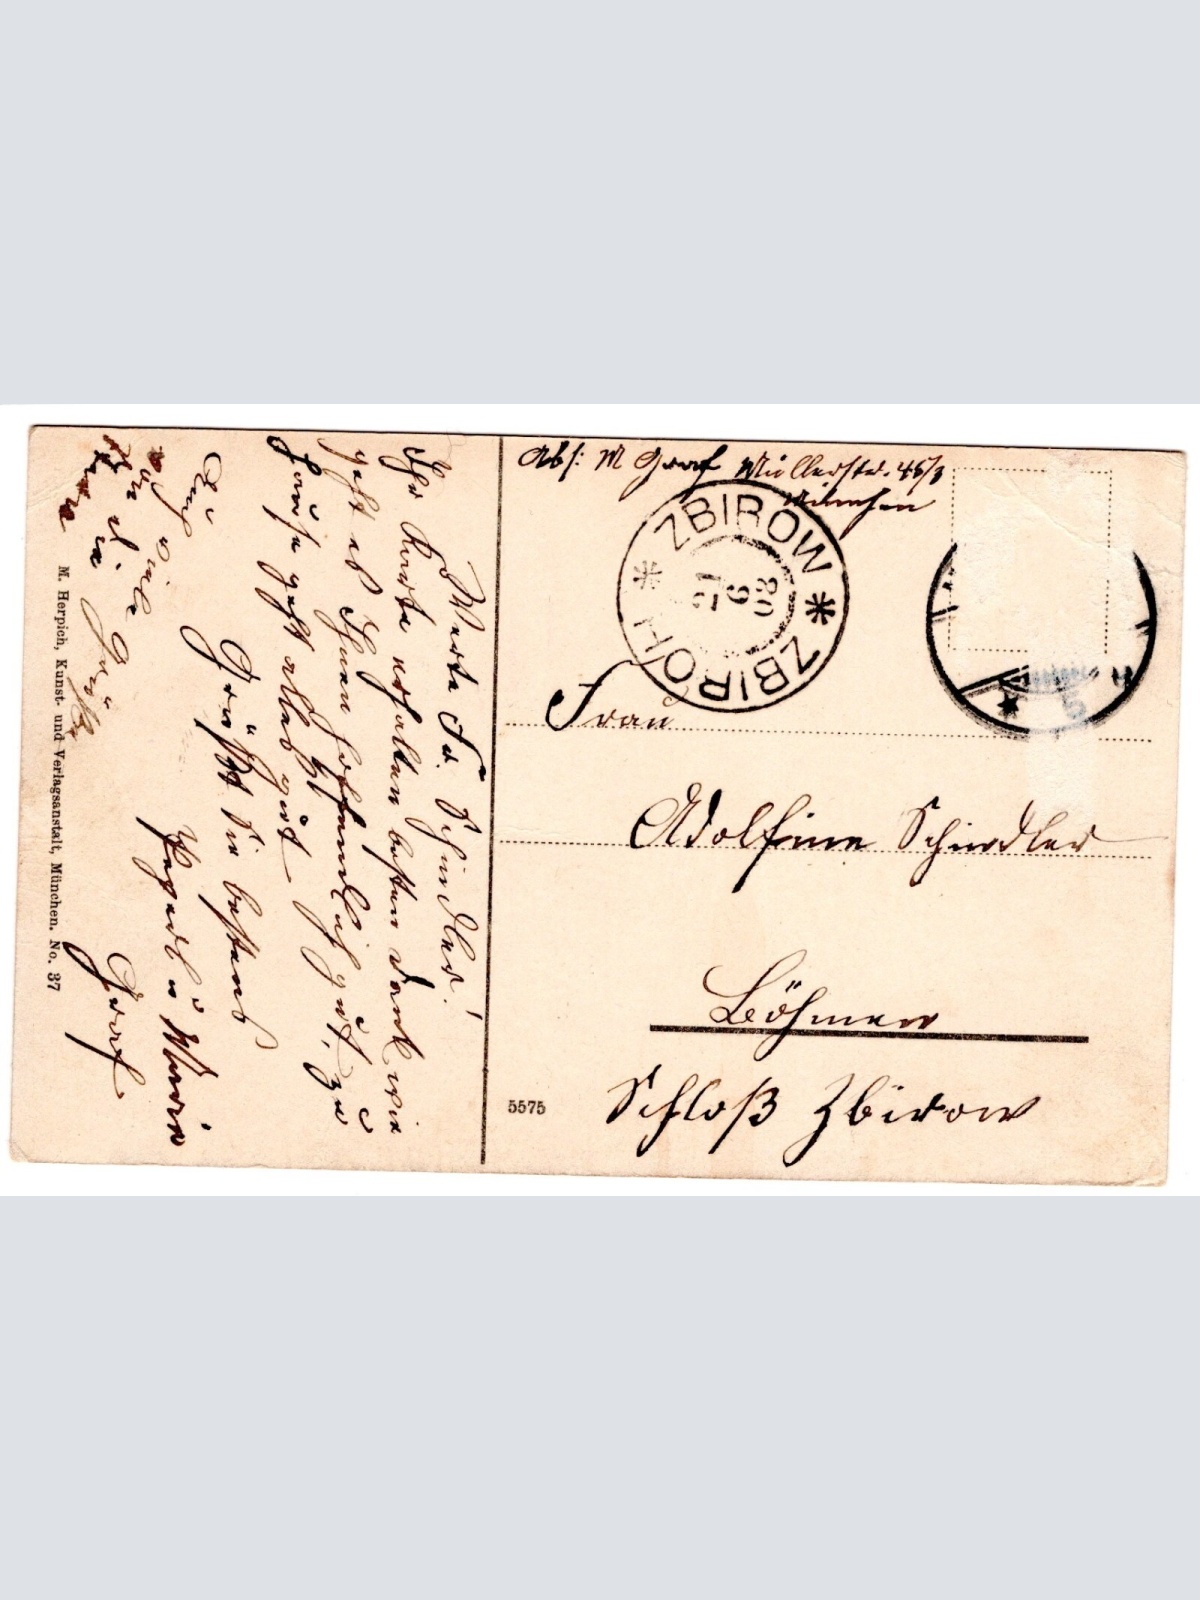 Abs: M Graf Müllerstr. 45/3
München
ZBIROW
ZBIROH
21
6
08
Frau
Adolfine Schindler
Böhmen
Schloß Zbirow
5575
Werte Fr. Schindler!
Ihr Karte erhalten besten Dank wie
geht es Ihnen hoffendlich gut, zu
Hause geht alles gut
Grüßt Sie bestens
u Maria
Graf
Auch viele Grüße
von
M. Herpich, Kunst- und Verlagsanstalt, München. No. 37